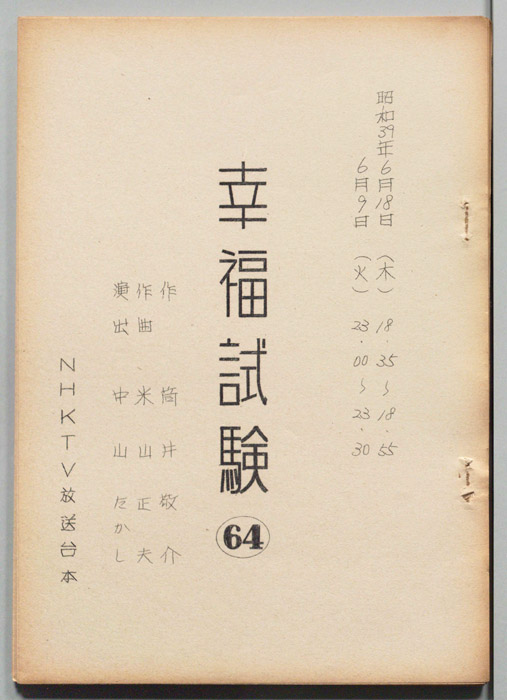 昭和39年6月18日（木）18.35〜18.55
6月9日（火）23.00〜23.30
幸福試験
64
作 筒井敬介
作曲 米山正夫
演出 中山たかし
NHKTV放送台本